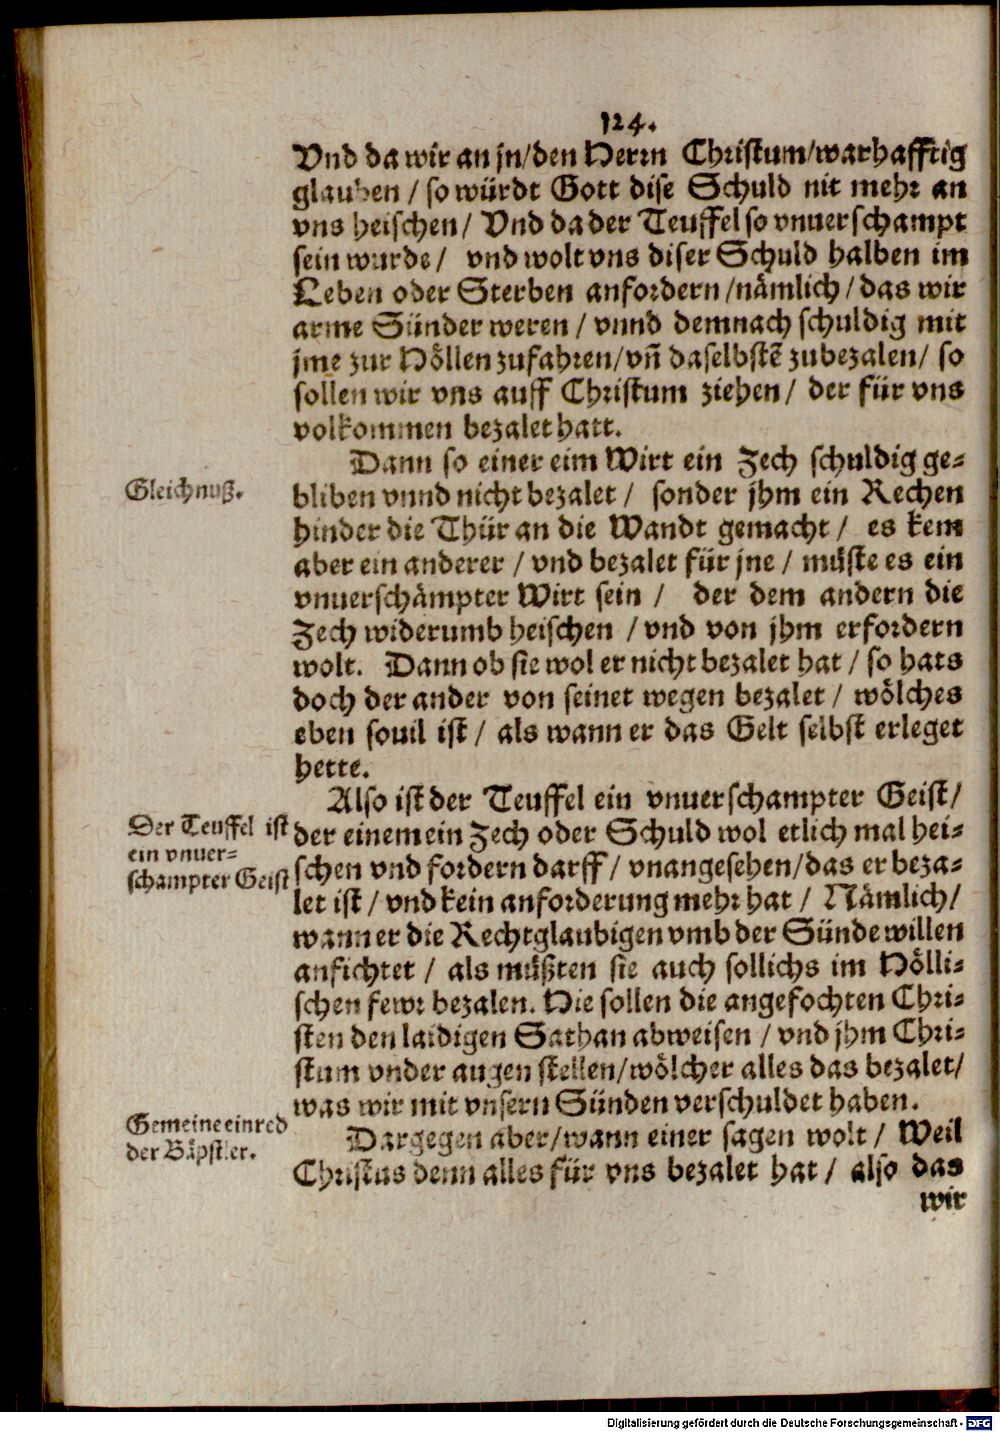 124.
Vnd da wir an jn/den Herrn Christum/warhafftig
glauben / so würdt Gott dise Schuld nit mehr an
vns heischen/ Vnd da der Teuffel so vnuerschampt
sein wurde/ vnd wolt vns diser Schuld halben im
Leben oder Sterben anfordern/nämlich/das wir
arme Sünder weren / vnnd demnach schuldig mit
jme zur Höllen zufahren/vñ daselbstẽ zubezalen/ so
sollen wir vns auff Christum ziehen/ der für vns
volkommen bezalet hatt.
Gleichnuß.
Dann so einer eim Wirt ein Zech schuldig ge-
bliben vnnd nicht bezalet / sonder jhm ein Rechen
hinder die Thür an die Wandt gemacht / es kem
aber ein anderer / vnd bezalet für jne / müste es ein
vnuerschämpter Wirt sein / der dem andern die
Zech widerumb heischen / vnd von jhm erfordern
wolt. Dann ob sie wol er nicht bezalet hat / so hats
doch der ander von seinet wegen bezalet / wölches
eben souil ist / als wann er das Gelt selbst erleget
hette.
Also ist der Teuffel ein vnuerschampter Geist/
Der Teuffel ist
ein vnuer-
schampter Geist
der einem ein Zech oder Schuld wol etlich mal hei-
schen vnd fordern darff / vnangesehen/das er beza-
let ist / vnd kein anforderung mehr hat / Nämlich/
wann er die Rechtglaubigen vmb der Sünde willen
anfichtet / als müßten sie auch sollichs im Hölli-
schen fewr bezalen. Hie sollen die angefochten Chri-
sten den laidigen Sathan abweisen / vnd jhm Chri-
stum vnder augen stellen/wölcher alles das bezalet/
was wir mit vnsern Sünden verschuldet haben.
Gemeine einred
der Bäpstler.
Dargegen aber/wann einer sagen wolt / Weil
Christus denn alles für vns bezalet hat / also das
wir
Digitalisierung gefördert durch die Deutsche Forschungsgemeinschaft - DFG